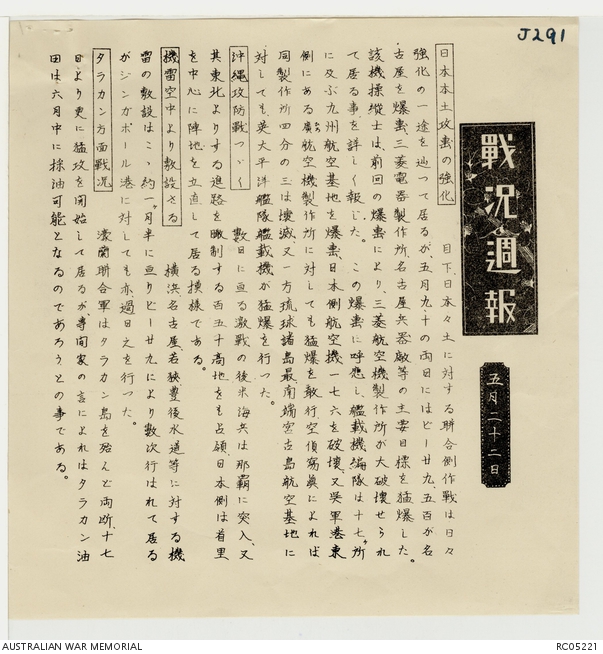 J291
戰況週報
五月二十二日
日本本土攻擊の強化 目下、日本々土に対する聯合側作戰は日々
強化の一途を辿つて居るが、五月九、十の両日にはビー廿九五百が名
古屋を爆擊、三菱電器製作所、名古屋兵器廠等の主要目標を猛爆した。
該機操縦士は、前回の爆擊により、三菱航空機製作所が大破壞せられ
て居る事を詳しく報じた。 この爆擊に呼應し、艦載機編隊は十七ヶ所
に及ぶ九州航空基地を爆擊、日本側航空機一七六を破壞、又吳軍港東
側にある廣航空機製作所に対しても猛爆を敢行、空偵寫真によれば
同製作所四分の三は壞滅、又一方琉球諸島最南端宮古島航空基地に
対しても、英太平洋艦隊艦載機が猛爆を行つた。
沖縄攻防戰つゞく 数日に亘る激戰の後米海兵は那覇に突入、又
其東北よりする進路を瞰制する百五十高地をも占領、日本側は首里
を中心に陣地を立直して居る模様である。
機雷空中より敷設さる 横浜、名古屋、若狹、豊後水道等に対する機
雷の敷設はこゝ約一ヶ月半に亘りビー廿九により数次行はれて居る
がシンガポール港に対しても亦過日之を行つた。
タラカン方面戰況 濠蘭聯合軍はタラカン島を殆んど両断、十七
日より更に猛攻を開始して居るが、専问家の言によればタラカン油
田は六月中に採油可能となるのであろうとの事である。
AUSTRALIAN WAR MEMORIAL
RC05221